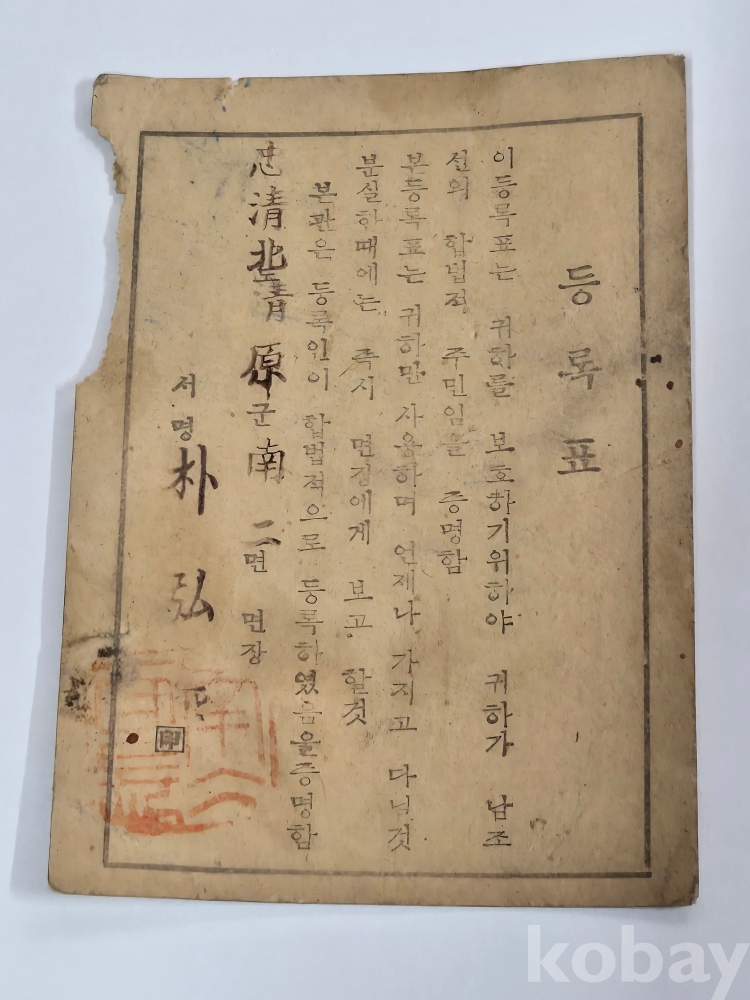 등록표
이등록표는 귀하를 보호하기위하야 귀하가 남조
선의 합법적 주민임을 증명함
본등록표는 귀하만 사용하며 언제나 가지고 다닐것
분실하때에는 즉시 면장에게 보고 할것
본관은 등록인이 합법적으로 등록하였음을증명함
忠清北 清原군 南二면 면장
서명 朴弘
印
kobay